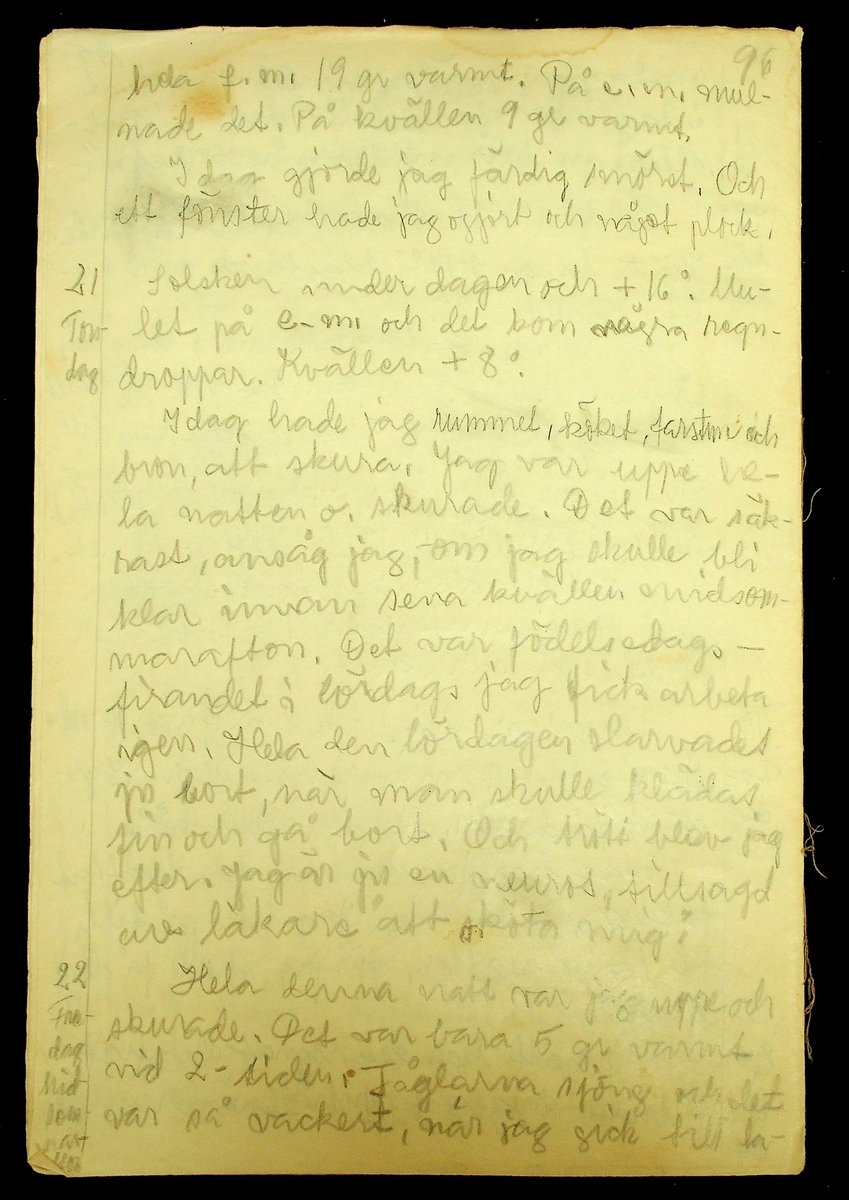 96
hela f.m. 19 gr varmt. På e.m. mul-
nade det. På kvällen 9 gr varmt.
I dag gjorde jag färdig smöret. Och
ett fönster hade jag ogjort och något plock.
21 Solsken under dagen och + 16°. Mu-
Tors- let på e-m. och det kom några regn-
dag droppar. Kvällen + 8°.
I dag hade jag rummet, köket, farstun och
bron, att skura. Jag var uppe he-
la natten o. skurade. Det var säk-
rast, ansåg jag, om jag skulle bli
klar innan sena kvällen midsom-
marafton. Det var födelsedags-
firandet i lördags jag fick arbeta
igen. Hela den lördagen slarvades
ju bort, när man skulle klädas
fin och gå bort. Och trött blev jag
efter. Jag är ju en neuros, tillsagd
av läkare att sköta mig!
22 Hela denna natt var jag uppe och
Fre- skurade. Det var bara 5 gr varmt
dag vid 2-tiden. Fåglarna sjöng och det
Mid- var så vackert, när jag gick till la-
som-
mar-